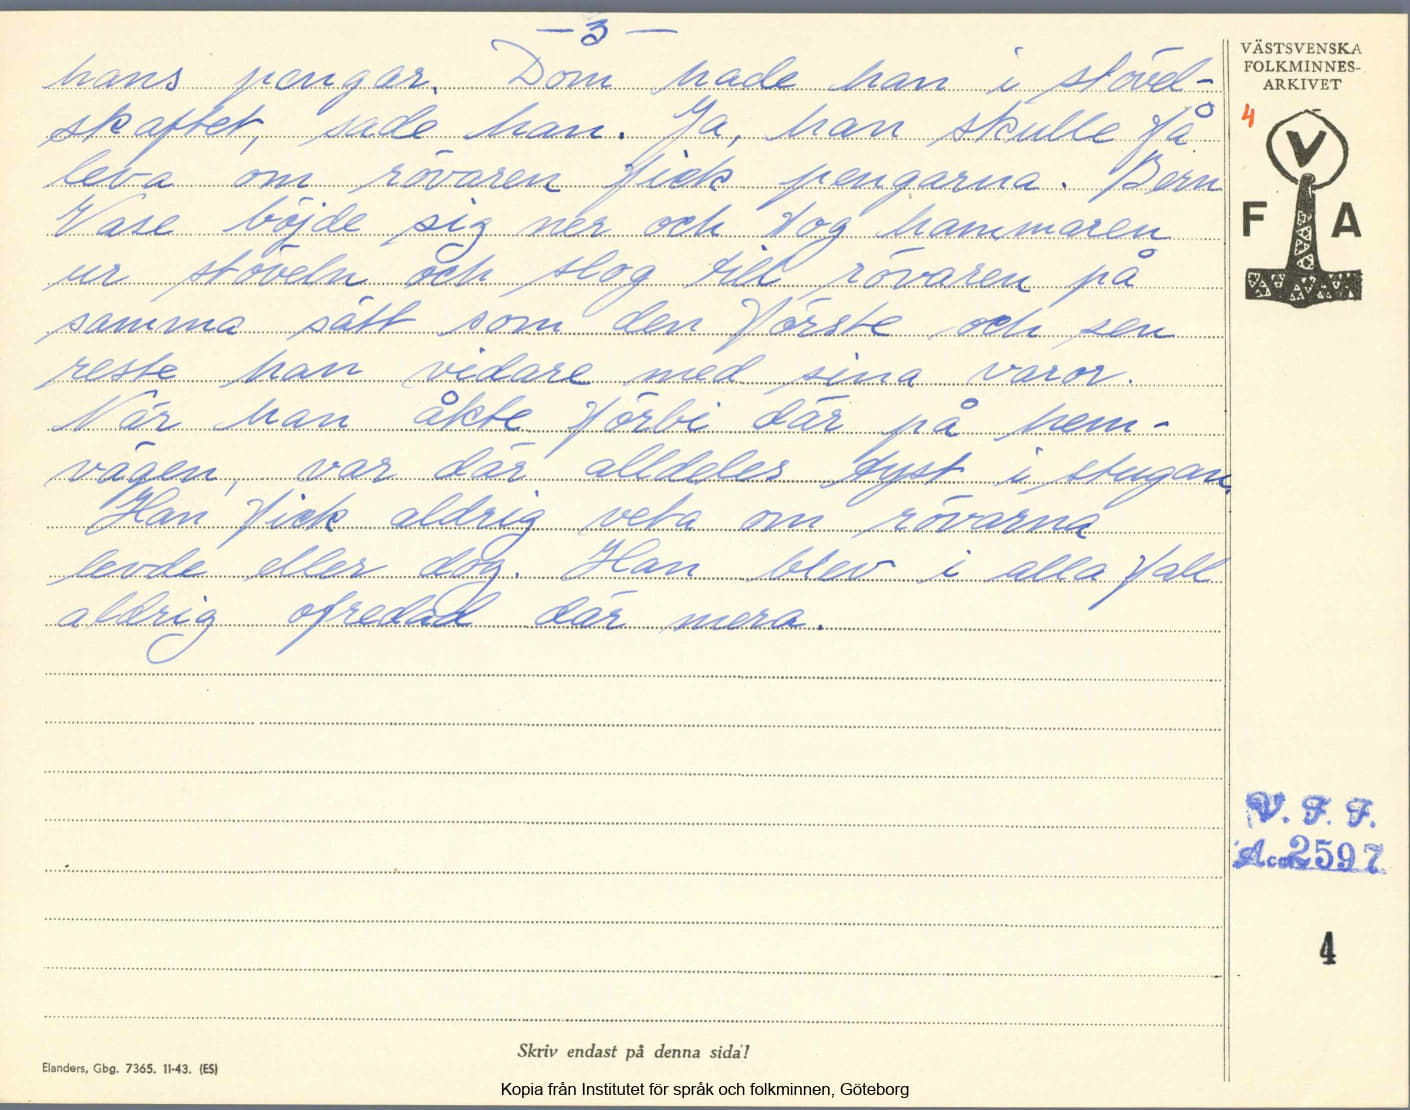 — 3 —
hans pengar. Dom hade han i stövel-
skaftet, sade han. Ja, han skulle få
leva om rövaren fick pengarna. Bern
Vase böjde sig ner och tog hammaren
ur stöveln och slog till rövaren på
samma sätt som den förste och sen
reste han vidare med sina varor.
När han åkte förbi där på hem-
vägen, var där alldeles tyst i stugan.
Han fick aldrig veta om rövarna
levde eller dog. Han blev i alla fall
aldrig ofredad där mera.
VÄSTSVENSKA
FOLKMINNES-
ARKIVET
4
V
F A
V. F. F.
Acc. 2597
4
Skriv endast på denna sida!
Elanders, Gbg. 7365. 11-43. (ES)
Kopia från Institutet för språk och folkminnen, Göteborg